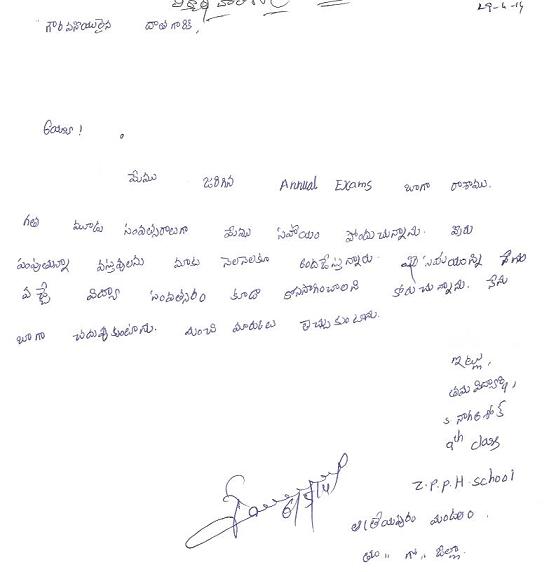 29-4-14
గౌరవనీయులైన దాత గారికి,
అయ్యా!
మేము జరిగిన Annual Exams బాగా రాశాము.
గత మూడు సంవత్సరాలుగా మేము సహాయం పొందుచున్నాము. మీరు
పంపుతున్న వస్తువులను మాకు నెలనెలకూ అందజేస్తున్నారు. ఈ సహాయాన్ని
వచ్చే విద్యా సంవత్సరం కూడా కొనసాగించాలని కోరుచున్నాను. నేను
బాగా చదువుకుంటాను. మంచి మార్కులు తెచ్చుకుంటాను.
ఇట్లు,
తమ విద్యార్థి,
S నాగ అశోక్
9th class
Z.P.P.H. school
ఆత్రేయపురం మండలం.
తూ,, గో,, జిల్లా.
6/5/14